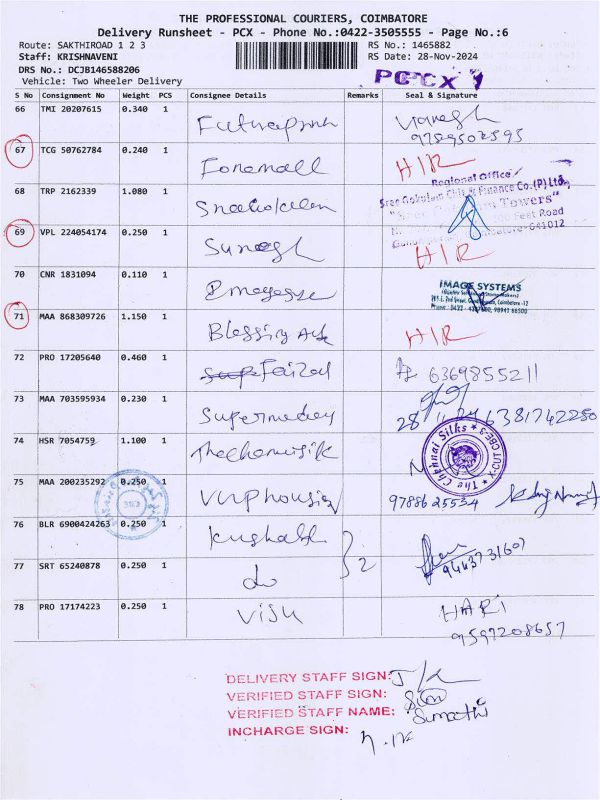 THE PROFESSIONAL COURIERS, COIMBATORE
Delivery Runsheet - PCX - Phone No.:0422-3505555 - Page No.:6
Route: SAKTHIROAD 1 2 3 RS No.: 1465882
Staff: KRISHNAVENI RS Date: 28-Nov-2024
DRS No.: DCJB146588206
Vehicle: Two Wheeler Delivery
PCX
S No Consignment No Weight PCS Consignee Details Remarks Seal & Signature
66 TMI 20207615 0.340 1
67 TCG 50762784 0.240 1 HIR
Regional Office
68 TRP 2162339 1.080 1 Sree Gokulam Chit & Finance Co.(P) Ltd.,
Towers"
100 Feet Road
641012
69 VPL 224054174 0.250 1 Suresh HIR
70 CNR 1831094 0.110 1 IMAGE SYSTEMS
Coimbatore -12
71 MAA 868309726 1.150 1 Blessing HIR
72 PRO 17205640 0.460 1 Faizal 6369855211
73 MAA 703595934 0.230 1 28 6381742250
74 HSR 7054759 1.100 1 The Chennai Silks
75 MAA 200235292 0.250 1 9788625534
76 BLR 6900424263 0.250 1 2 9443731607
77 SRT 65240878 0.250 1 do
78 PRO 17174223 0.250 1 VISU HARI
9597208657
DELIVERY STAFF SIGN:
VERIFIED STAFF SIGN:
VERIFIED STAFF NAME: Sumathi
INCHARGE SIGN: